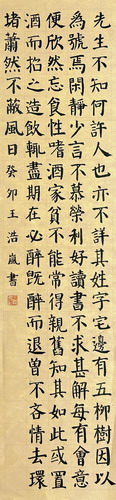 先生不知何許人也亦不詳其姓字宅邊有五柳樹因以
為號焉閑靜少言不慕榮利好讀書不求甚解每有會意
便欣然忘食性嗜酒家貧不能常得親舊知其如此或置
酒而招之造飲輒盡期在必醉既醉而退曾不吝情去環
堵蕭然不蔽風日癸卯王浩嵐書